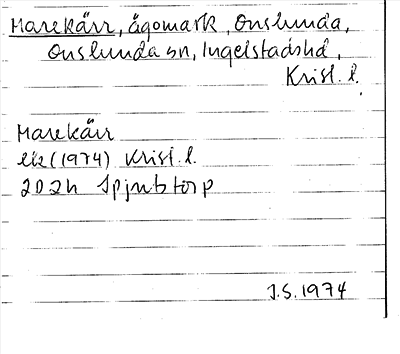 Harekärr, ägomark, Onslunda,
Onslunda sn, Ingelstadshd,
Krist. l.
Harekärr
(1974) Krist. l.
2D2h Spjutstorp
J.S. 1974